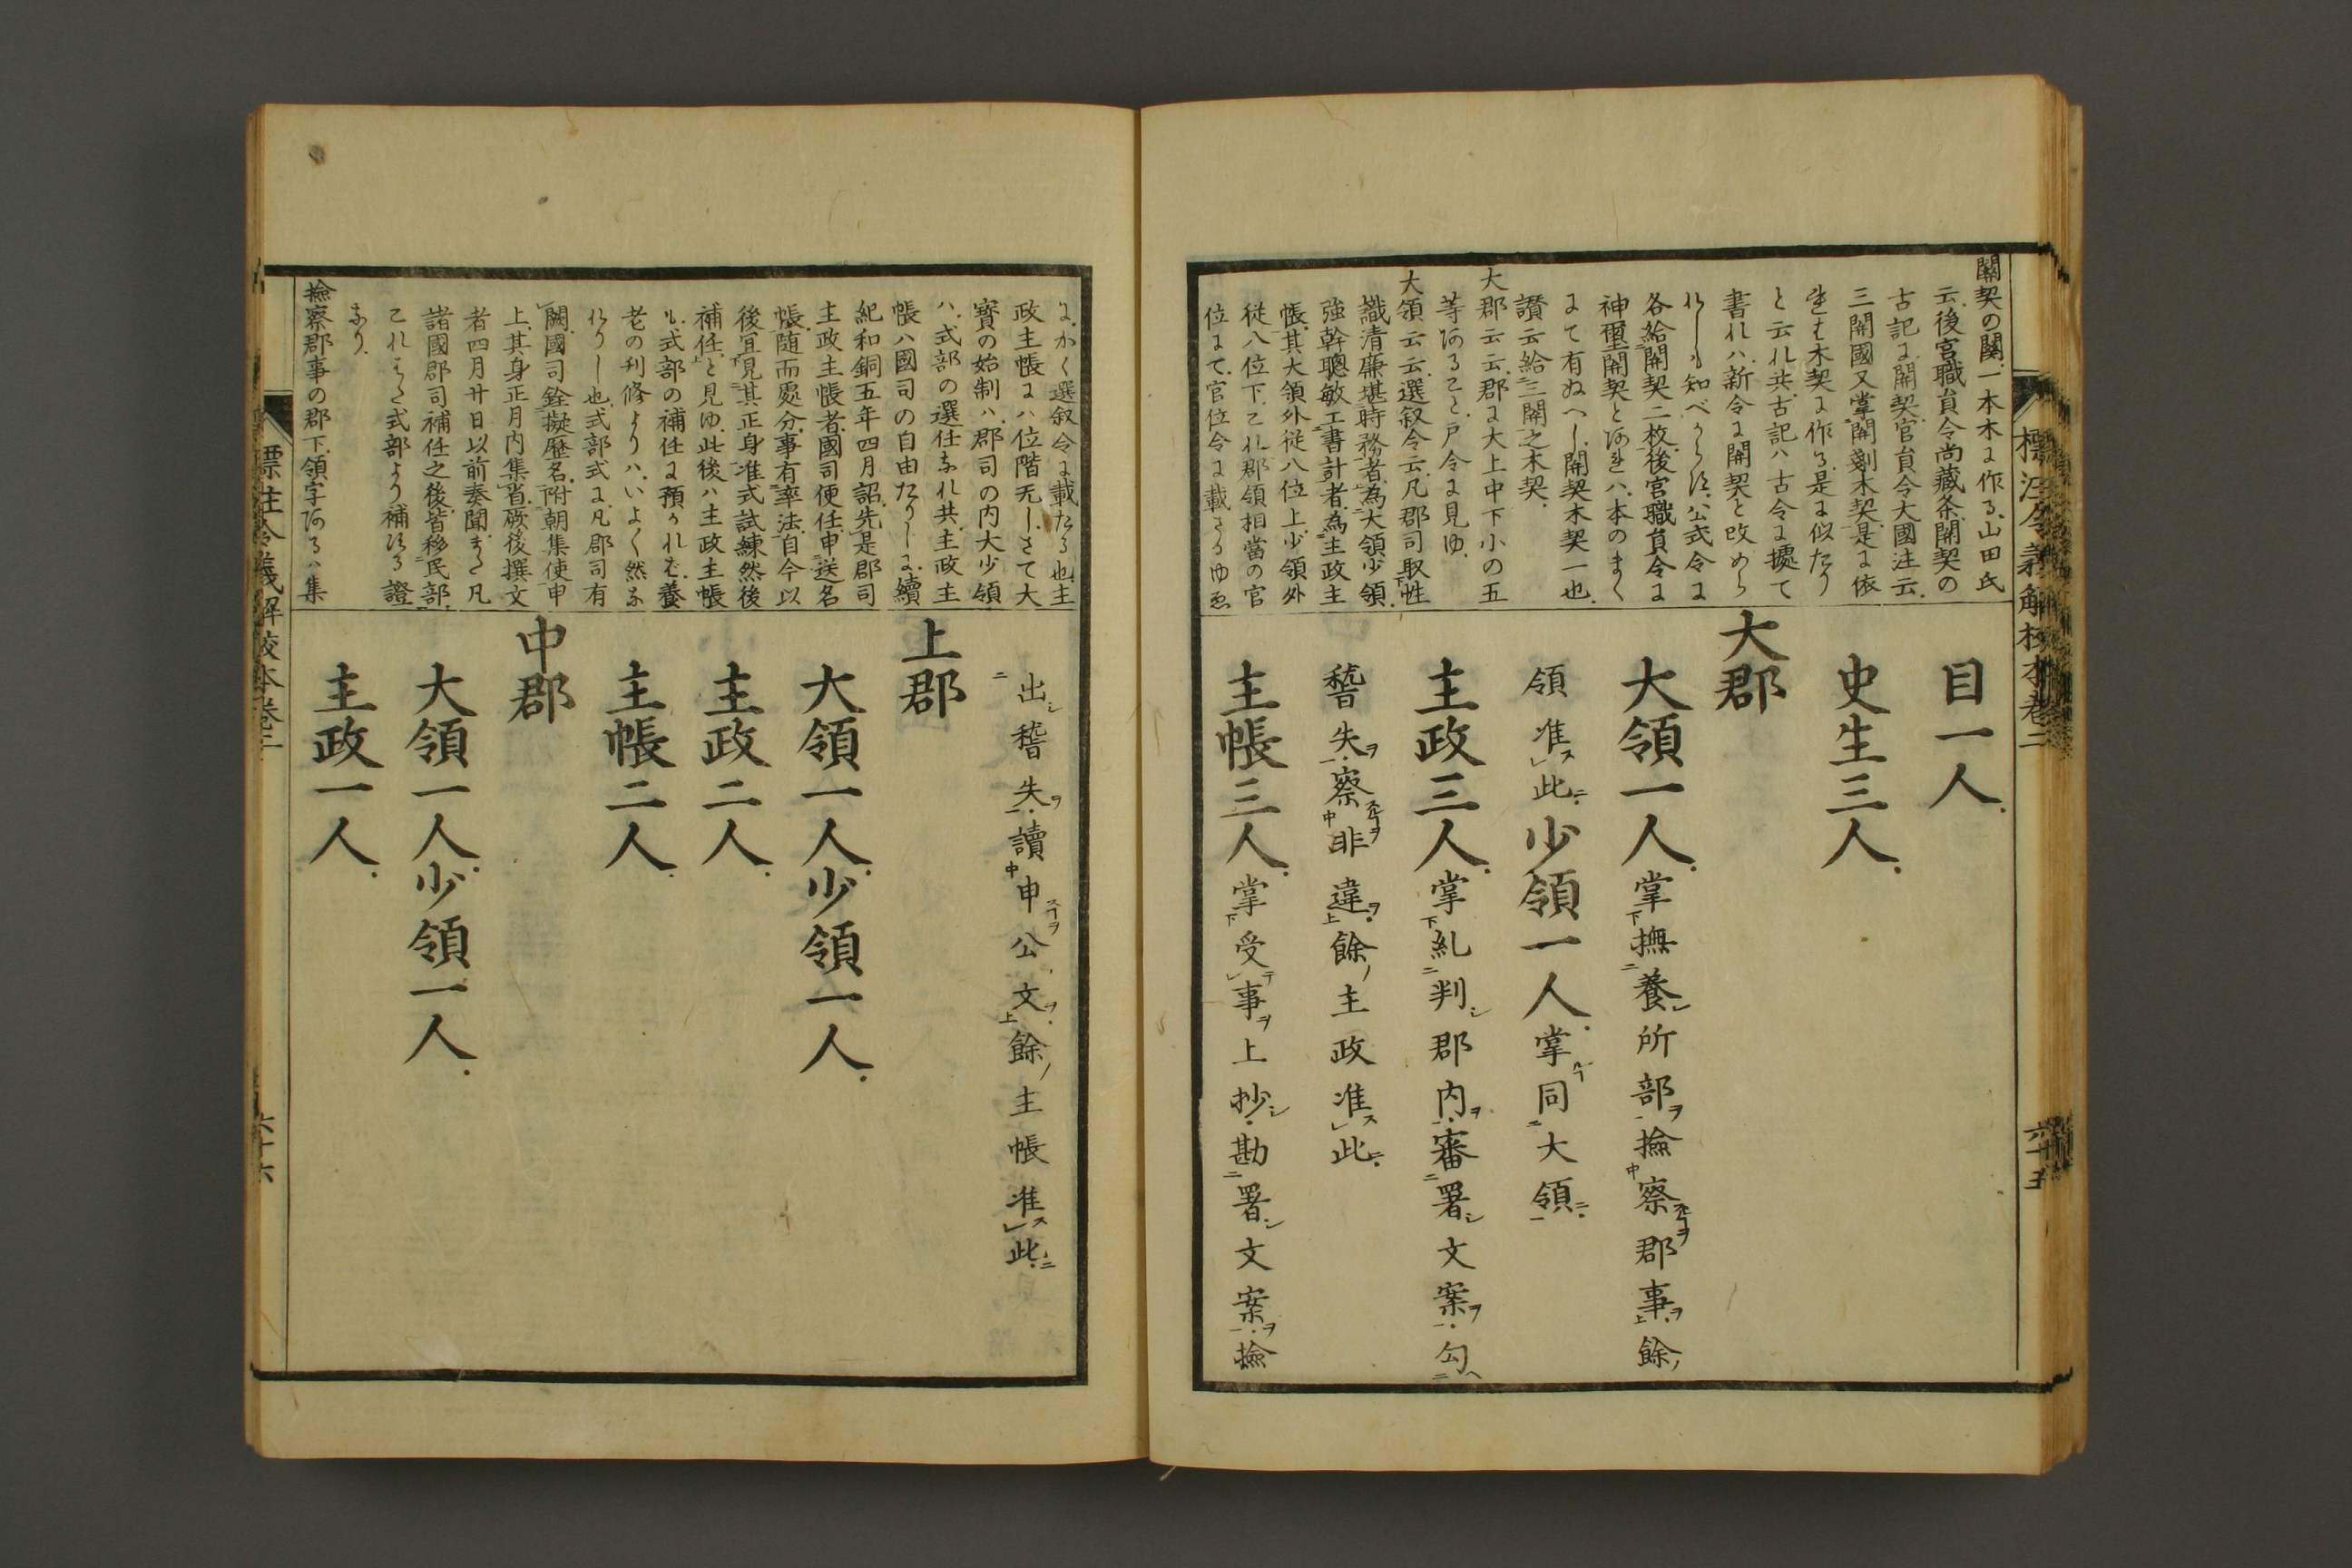 標注令義解校本卷二
六十五
關契の關一本木に作る山田氏
云後宮職員令尚藏条關契の
古記に開契官員令大國注云
三關國又掌關剗木契是に依
れば木契に作る是に似たり
と云れ共古記ハ古令に據て
書れハ新令に關契と改めら
れしも知べからず公式令に
各給關契二枚後宮職員令に
神璽關契とあれハ本のまく
にて有ぬへし關契木契一也
讃云給三關之木契
大郡云云郡に大上中下小の五
等あること戸令に見ゆ
大領云云選叙令云凡郡司取性
識清廉堪時務者為大領少領
強幹聰敏工書計者為主政主
帳其大領外従八位上少領外
従八位下これ郡領相當の官
位にて官位令に載さるゆゑ
目一人
史生三人
大郡
大領一人掌撫養所部撿察郡事餘
領准此少領一人掌同大領
主政三人掌糺判郡内審署文案勾
稽失察非違餘主政准此
主帳三人掌受事上抄勘署文案撿
にかく選叙令に載たる也主
政主帳にハ位階无しさて大
寳の始制ハ郡司の内大少領
ハ式部の選任なれ共主政主
帳ハ國司の自由たりしに續
紀和銅五年四月詔先是郡司
主政主帳者國司便任申送名
帳随而處分事有率法自今以
後宜見其正身准式試練然後
補任と見ゆ此後ハ主政主帳
も式部の補任に預かれば養
老の刊修よりハいよく然な
りし也式部式に凡郡司有
闕國司銓擬歴名附朝集使申
上其身正月内集省厥後撰文
者四月廿日以前奏聞また凡
諸國郡司補任之後皆移民部
これまた式部より補する證
なり
撿察郡事の郡下領字あるハ集
出稽失讀申公文餘主帳准此
上郡
大領一人少領一人
主政二人
主帳二人
中郡
大領一人少領一人
主政一人
標注令義解校本卷二
六十六